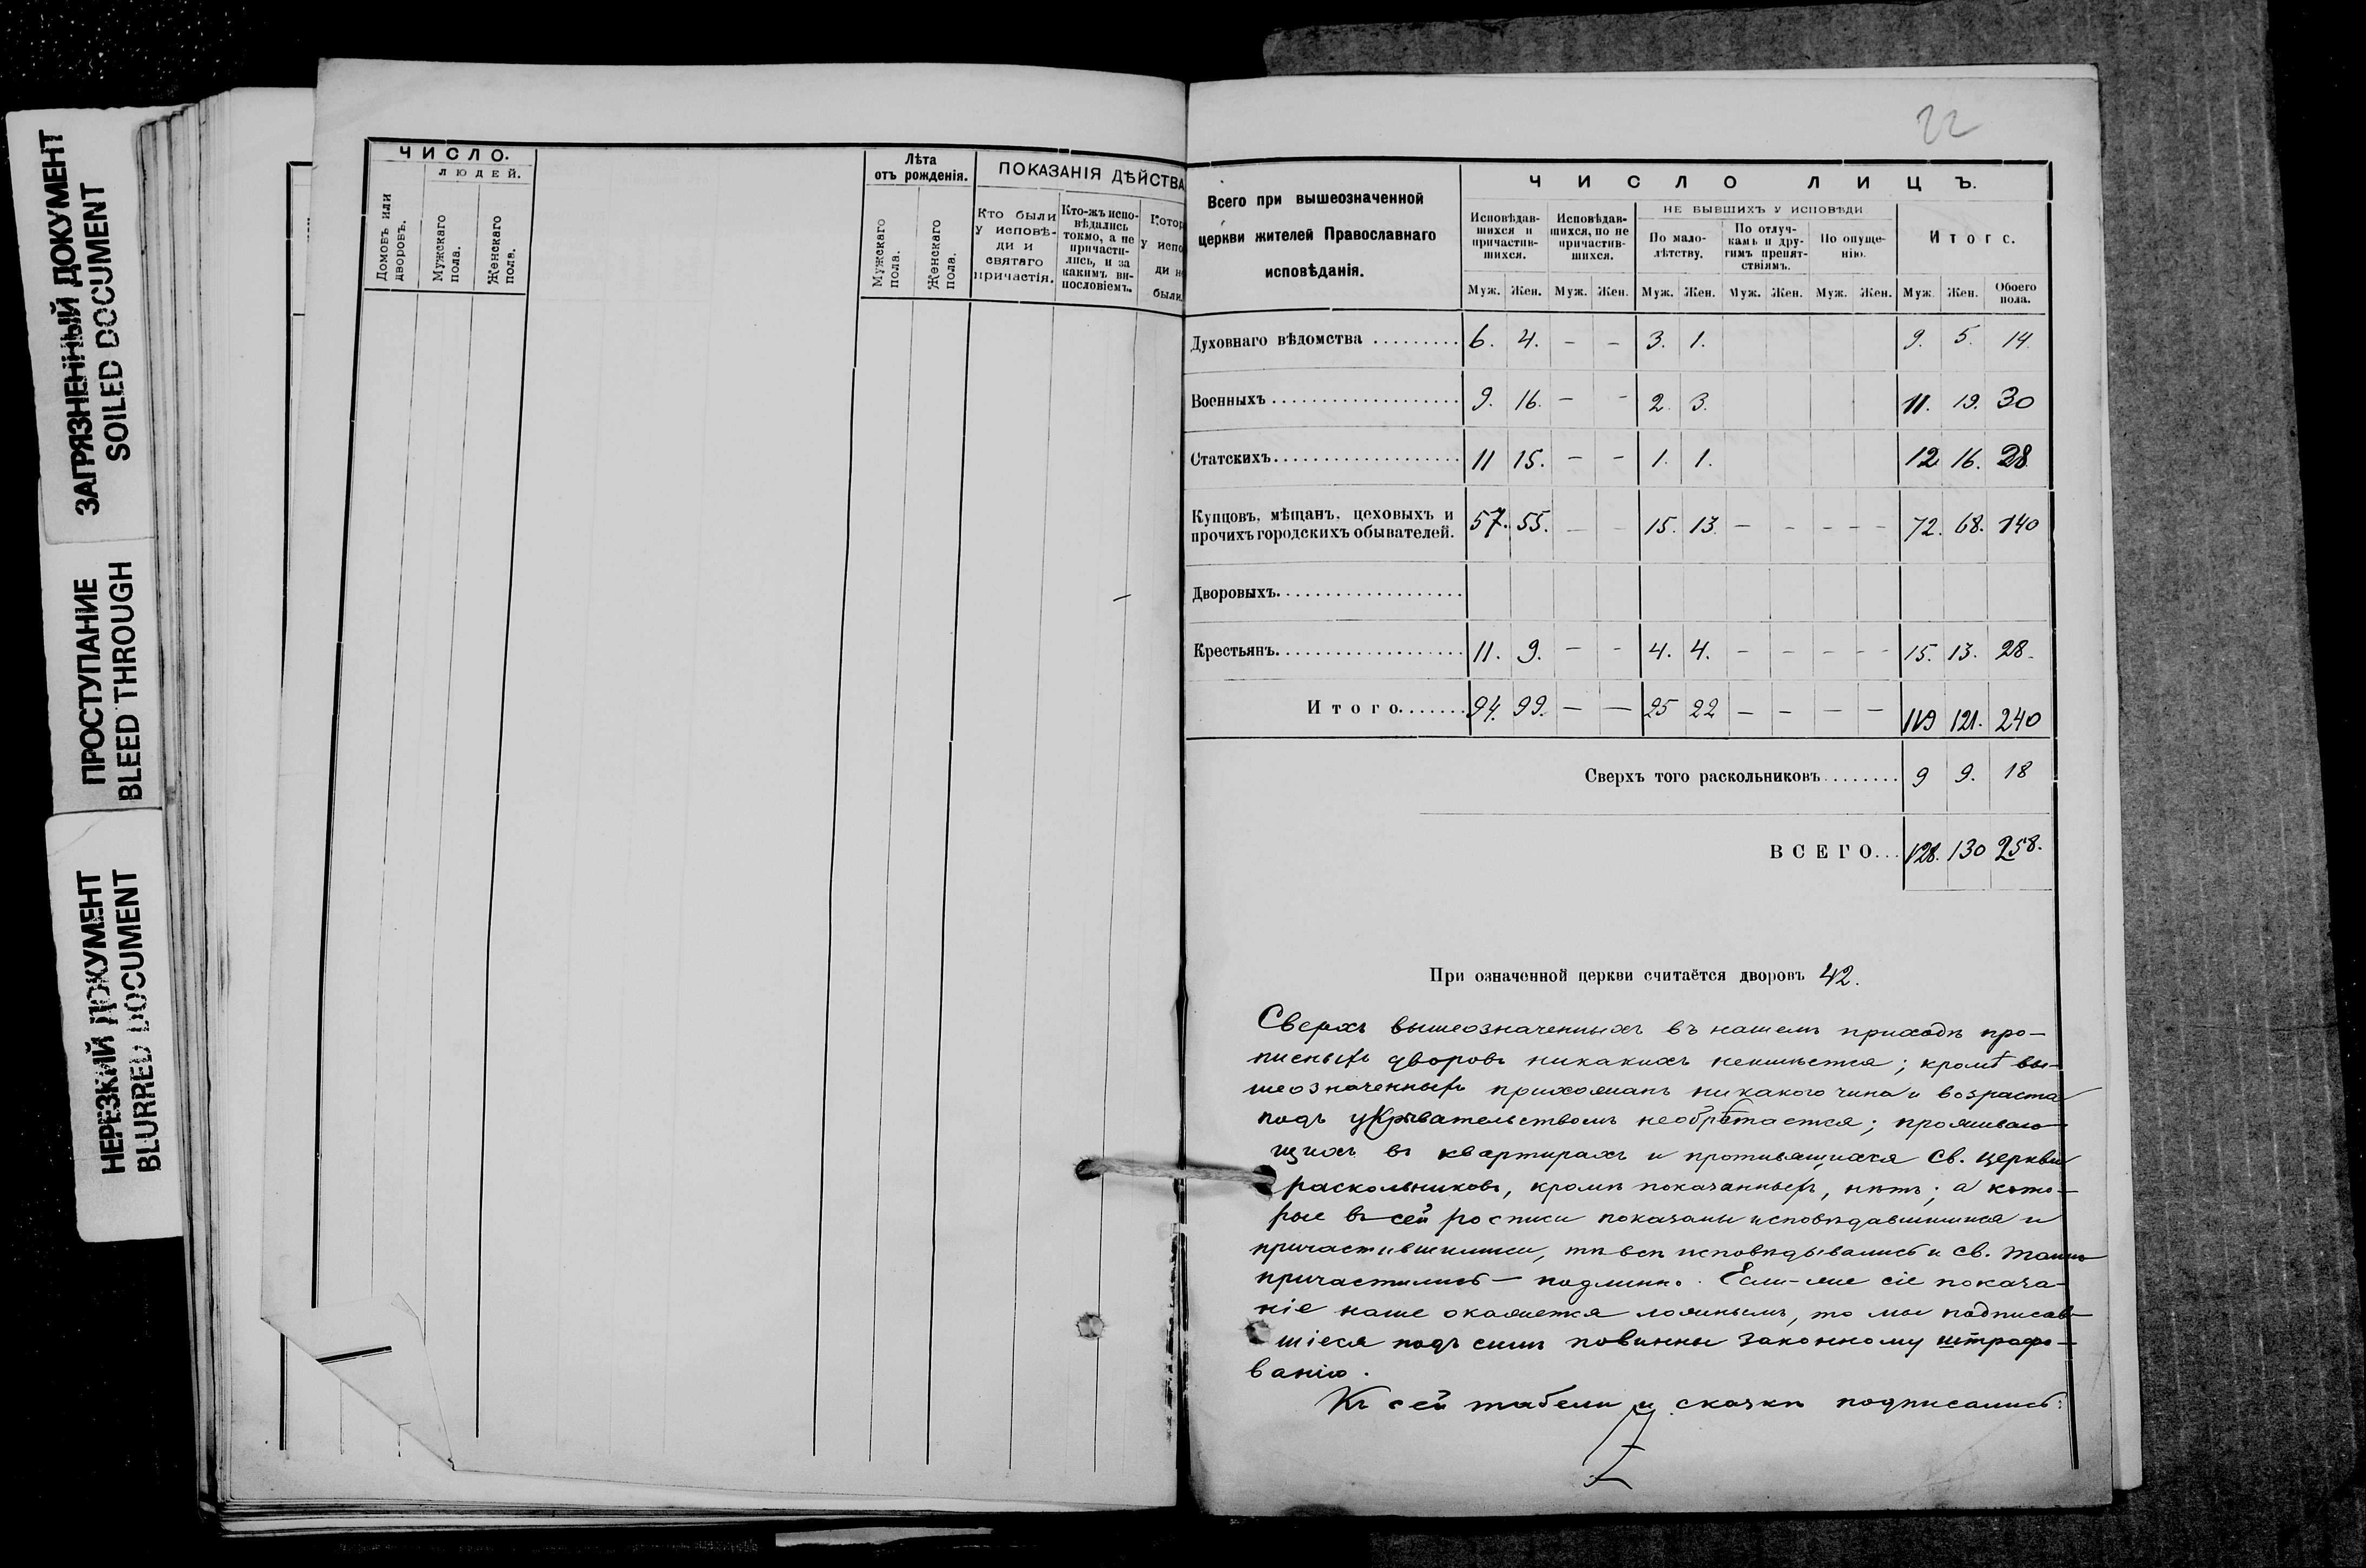 ЗАГРЯЗНЕННЫЙ ДОКУМЕНТ
SOILED DOCUMENT
ПРОСТУПАНИЕ
BLEED THROUGH
НЕРЕЗКИЙ ДОКУМЕНТ
BLURRED DOCUMENT
ЧИСЛО.
ЛЮДЕЙ.
Домовъ или дворовъ.
Мужскаго пола.
Женскаго пола.
Лѣта
отъ рожденія.
Мужскаго пола.
Женскаго пола.
ПОКАЗАНІЯ ДѢЙСТВА
Кто были
у исповѣ-
ди и
святаго
причастія.
Кто-жъ испо-
вѣдались
токмо, а не
причасти-
лись, и за
какимъ ви-
нословіемъ.
Котор
у испо
ди н
были.
22
Всего при вышеозначенной
церкви жителей Православнаго
исповѣданія.
ЧИСЛО ЛИЦЪ.
Исповѣдав-
шихся и
причастив-
шихся.
Исповѣдав-
шихся, но не
причастив-
шихся.
НЕ БЫВШИХЪ У ИСПОВѢДИ
По мало-
лѣтству.
По отлуч-
камъ и дру-
гимъ препят-
ствіямъ.
По опуще-
нію.
Итого.
Муж. Жен. Муж. Жен. Муж. Жен. Муж. Жен. Муж. Жен. Муж. Жен. Обоего пола.
Духовнаго вѣдомства ......... 6. 4. — — 3. 1. 9. 5. 14.
Военныхъ ................... 9. 16. — — 2. 3. 11. 19. 30
Статскихъ................... 11 15. — — 1. 1. 12 16. 28
Купцовъ, мѣщанъ, цеховыхъ и
прочихъ городскихъ обывателей. 57. 55. — — 15. 13. — — — — 72. 68. 140
Дворовыхъ...................
Крестьянъ................... 11. 9. — — 4. 4. — — — — 15. 13. 28.
Итого....... 94. 99. — — 25 22 — — — — 119 121. 240
Сверхъ того раскольниковъ........ 9 9. 18
ВСЕГО... 128. 130 258.
При означенной церкви считаётся дворовъ 42.
Сверхъ вышеозначенныхъ въ нашемъ приходѣ про-
писныхъ дворовъ никакихъ неимѣется; кромѣ вы-
шеозначенныхъ прихожанъ никакого чина и возраста
подъ укрывательствомъ необрѣтается; проживаю-
щихъ въ квартирахъ и противящихся св. церкви
раскольниковъ, кромѣ показанныхъ, нѣтъ; а кото-
рые въ сей росписи показаны исповѣдавшимися и
причастившимися, тѣ всѣ исповѣдывались и св. таинъ
причастились — подлинно. Если-же сіе показа-
ніе наше окажется ложнымъ, то мы подписав-
шіеся подъ симъ повинны законному штрафо-
ванію.
Къ сей табели и сказкѣ подписались: